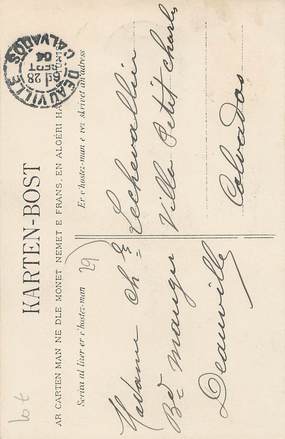 KARTEN-BOST
AR CARTEN MAN NE DLE MONET NEMET E FRANS, EN ALGÉRI HA
Scrivit al lizer er c'hostez-man
Er c'hostez-man e vez skrivet an adress
DEAUVILLE
28
SEPT
04
CALVADOS
Madame Ch. Lechevallier
Bd Mauger Villa Petit Charles
Deauville
Calvados
29
lot